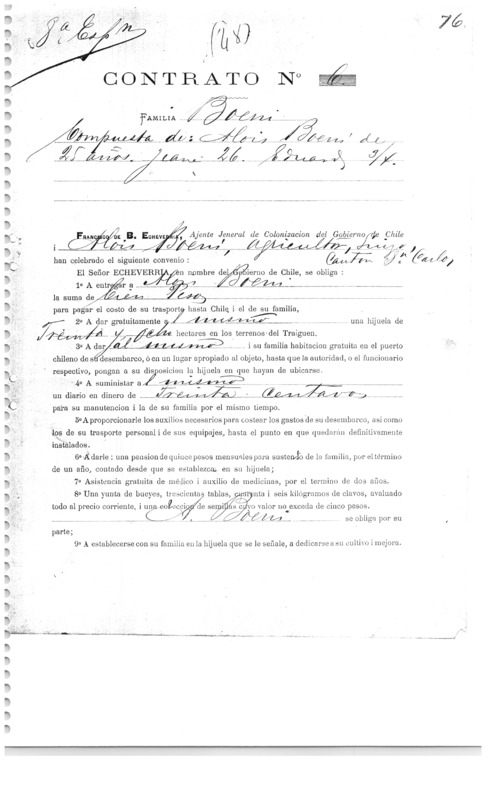 8ª Espn
(48)
76.
CONTRATO Nº 6
FAMILIA Boeni
Compuesta de: Alois Boeni de
25 años. Jeane 26. Eduard 3/4.
FRANCISCO DE B. ECHEVERRIA, Ajente Jeneral de Colonizacion del Gobierno de Chile
i Alois Boeni, agricultor, suizo,
han celebrado el siguiente convenio : Canton Sn. Carlos
El Señor ECHEVERRIA, en nombre del Gobierno de Chile, se obliga :
1º A entregar a Alois Boeni
la suma de Cien Pesos
para pagar el costo de su trasporte hasta Chile i el de su familia,
2º A dar gratuitamente a l mismo una hijuela de
Treinta y ocho hectares en los terrenos del Traiguen.
3º A dar al mismo i su familia habitacion gratuita en el puerto
chileno de su desembarco, ó en un lugar apropiado al objeto, hasta que la autoridad, o el funcionario
respectivo, pongan a su disposicion la hijuela en que hayan de ubicarse.
4º A suministar a l mismo
un diario en dinero de Treinta Centavos
para su manutencion i la de su familia por el mismo tiempo.
5º A proporcionarle los auxilios necesarios para costear los gastos de su desembarco, asi como
los de su trasporte personal i de sus equipajes, hasta el punto en que quedarán definitivamente
instalados.
6º A darle : una pension de quince pesos mensuales para sustento de la familia, por el término
de un año, contado desde que se establezca en su hijuela ;
7º Asistencia gratuita de médico i auxilio de medicinas, por el termino de dos años.
8º Una yunta de bueyes, trescientas tablas, cuarenta i seis kilogramos de clavos, avaluado
todo al precio corriente, i una coleccion de semillas cuyo valor no exceda de cinco pesos.
A. Boeni se obliga por su
parte;
9º A establecerse con su familia en la hijuela que se le señale, a dedicarse a su cultivo i mejora.